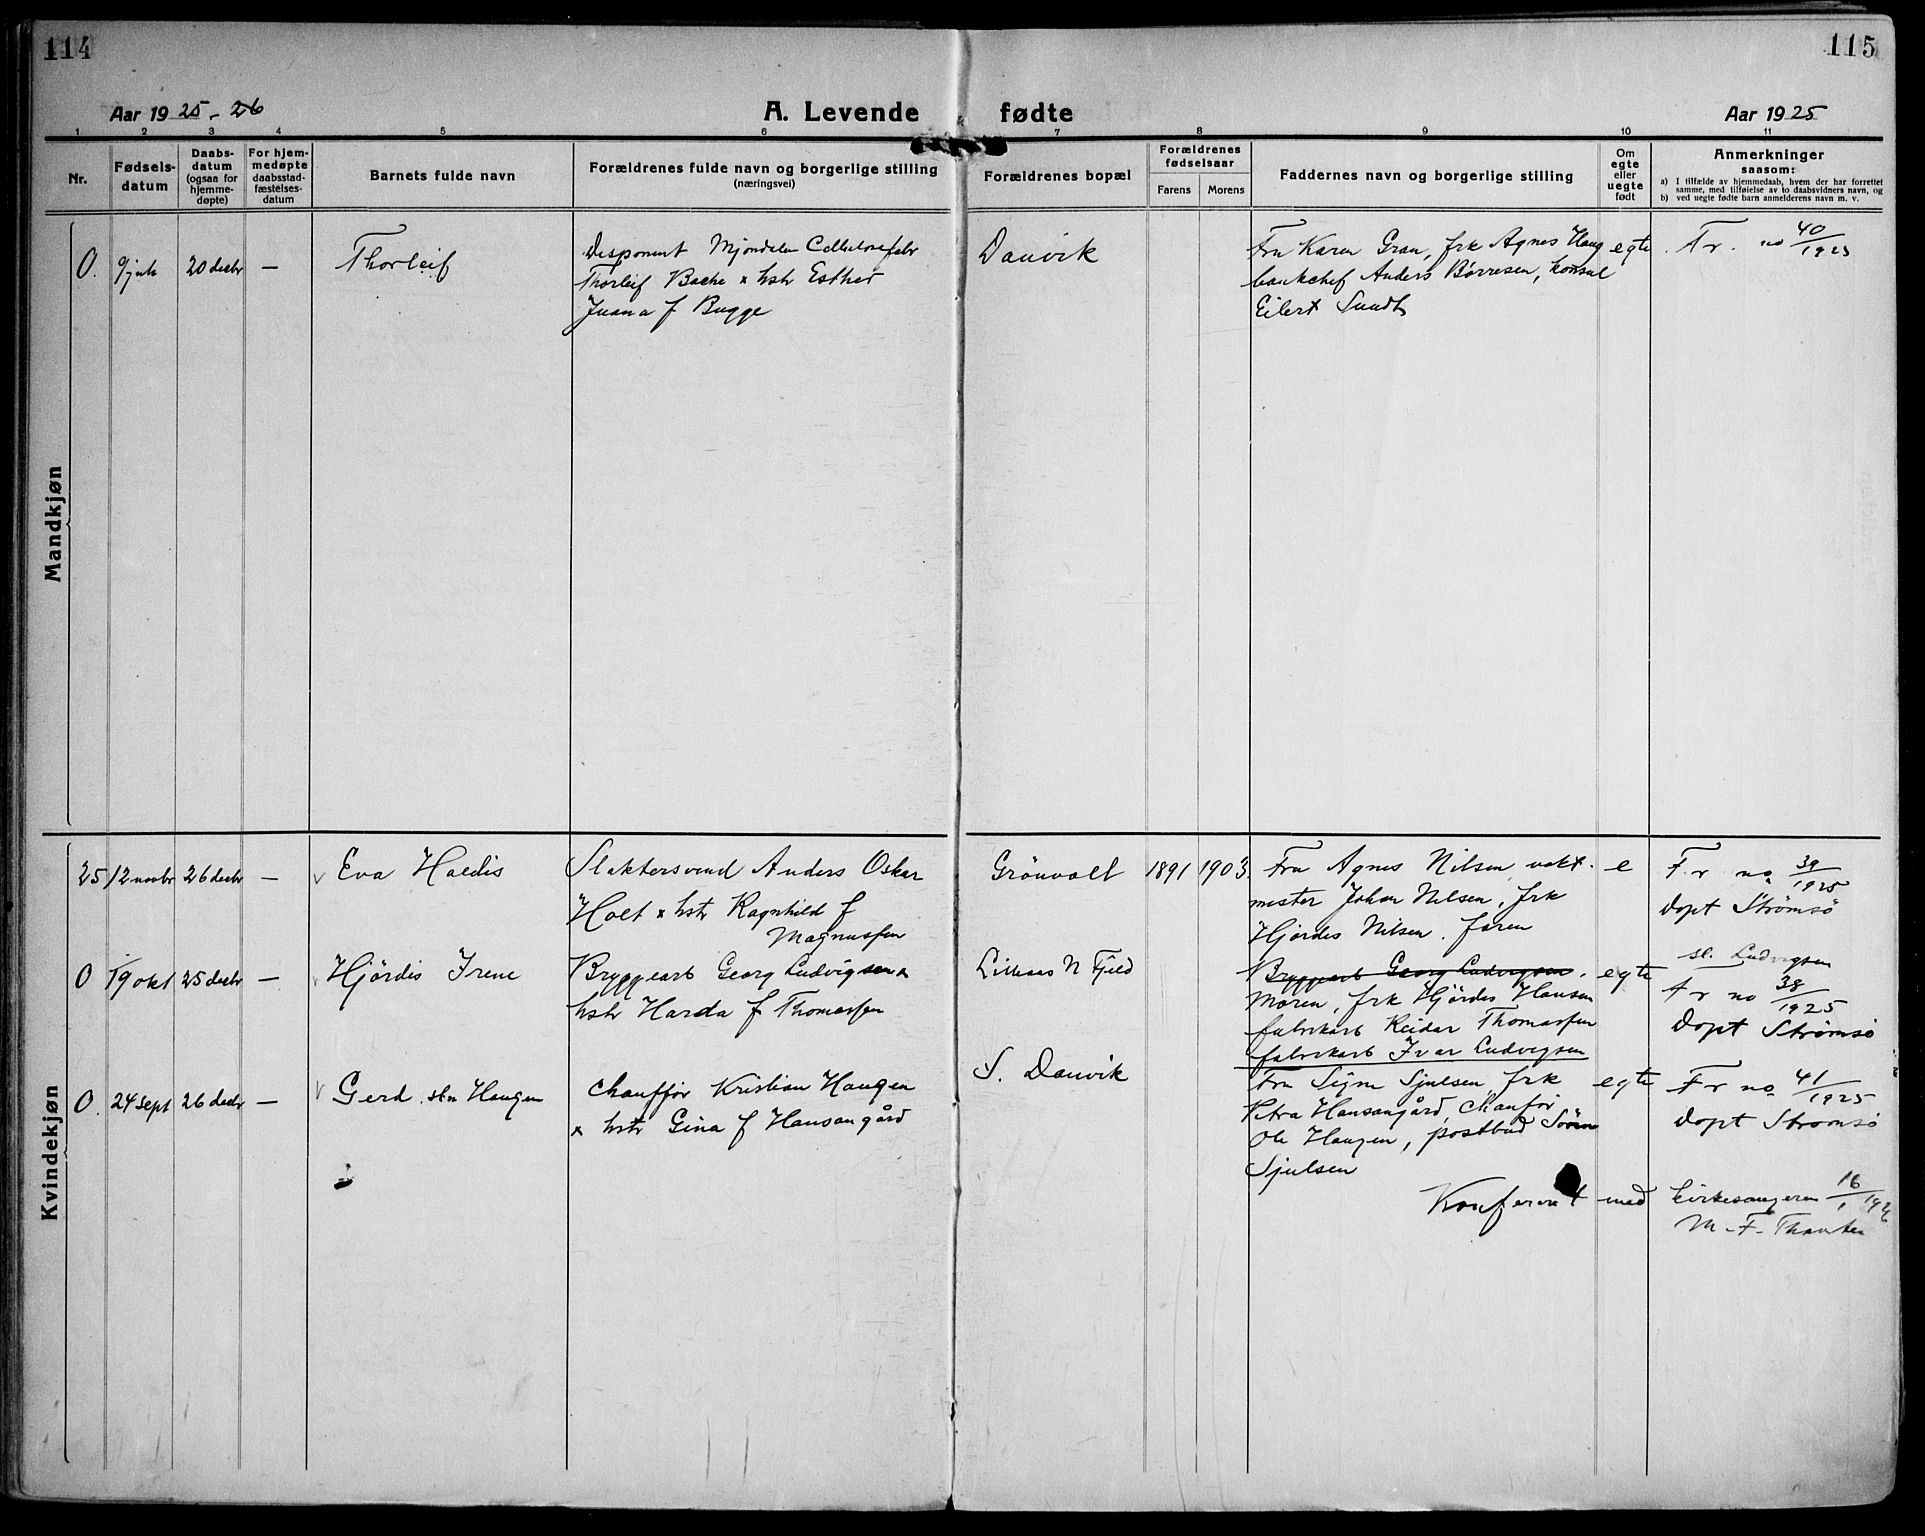 114
115
Aar 1925-26
A. Levende fødte
Aar 1925
1 2 3 4 5 6 7 8 9 10 11
Nr.
Fødsels-
datum
Daabs-
datum
(ogsaa for
hjemme-
døpte)
For hjem-
medøpte
daabsstad-
fæstelses-
datum
Barnets fulde navn
Forældrenes fulde navn og borgerlige stilling
(næringsvei)
Forældrenes bopæl
Forældrenes
fødselsaar
Farens Morens
Faddernes navn og borgerlige stilling
Om
egte
eller
uegte
født
Anmerkninger
saasom:
a) I tilfælde av hjemmedaab, hvem der har forrettet
samme, med tilføielse av to daabsvidners navn, og
b) ved uegte fødte barn anmelderens navn m. v.
Mandkjøn
0. 9 juli 20 decbr — Thorleif
Disponent Mjøndalen Cellulosefabr
Thorleif Bache x hstr Esther
Juana f Bugge
Danvik
Fru Karen Gran, frk Agnes Haug
bankchef Anders Børresen, konsul
Eilert Sundt
egte
Fr. no 40/1925
Kvindekjøn
25 12 novbr 26 decbr — v Eva Haldis
Slaktersvend Anders Oskar
Holt x hstr Ragnhild f
Magnussen
Grönvolt 1891 1903.
Fru Agnes Nilsen, vakt-
mester Johan Nilsen, frk
Hjørdis Nilsen. faren
e
F. r no 39/1925
döpt Strömsö
0 19 okt 25 decbr — v Hjördis Irene
Bryggearb Georg Ludvigsen x
hstr Harda f Thomassen
Lilleaas N Fjeld
Bryggearb Georg Ludvigsen.
Moren, frk Hjördis Hansen
fabrikarb Reidar Thomassen
fabrikarb Ivar Ludvigsen
egte
sl. Ludvigsen
Fr no 38/1925
Döpt Strømsö
0. 24 sept 26 decbr — v Gerd. sln Haugen
Chauffør Kristian Haugen
x hstr Gina f Hansangård
S. Danvik
Fru Signe Sjulsen, frk
Petra Hansangård, Chauför
Ole Haugen, postbud Sören
Sjulsen
egte
F r no 41/1925
döpt Strømsö
Konferert med kirkesangeren 16/1 1926
M. F.